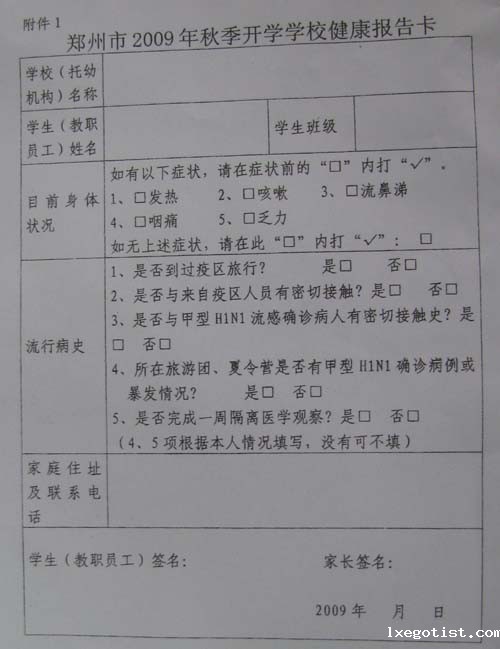 附件1
郑州市2009年秋季开学学校健康报告卡
学校(托幼
机构)名称
学生(教职
员工)姓名
学生班级
目前身体
状况
如有以下症状,请在症状前的“□”内打“√”。
1、□发热 2、□咳嗽 3、□流鼻涕
4、□咽痛 5、□乏力
如无上述症状,请在此“□”内打“√”: □
流行病史
1、是否到过疫区旅行? 是□ 否□
2、是否与来自疫区人员有密切接触?是□ 否□
3、是否与甲型H1N1流感确诊病人有密切接触史?是
□ 否□
4、所在旅游团、夏令营是否有甲型H1N1确诊病例或
暴发情况? 是□ 否□
5、是否完成一周隔离医学观察?是□ 否□
(4、5项根据本人情况填写,没有可不填)
家庭住址
及联系电
话
学生(教职员工)签名: 家长签名:
2009年 月 日
lxegotist.com